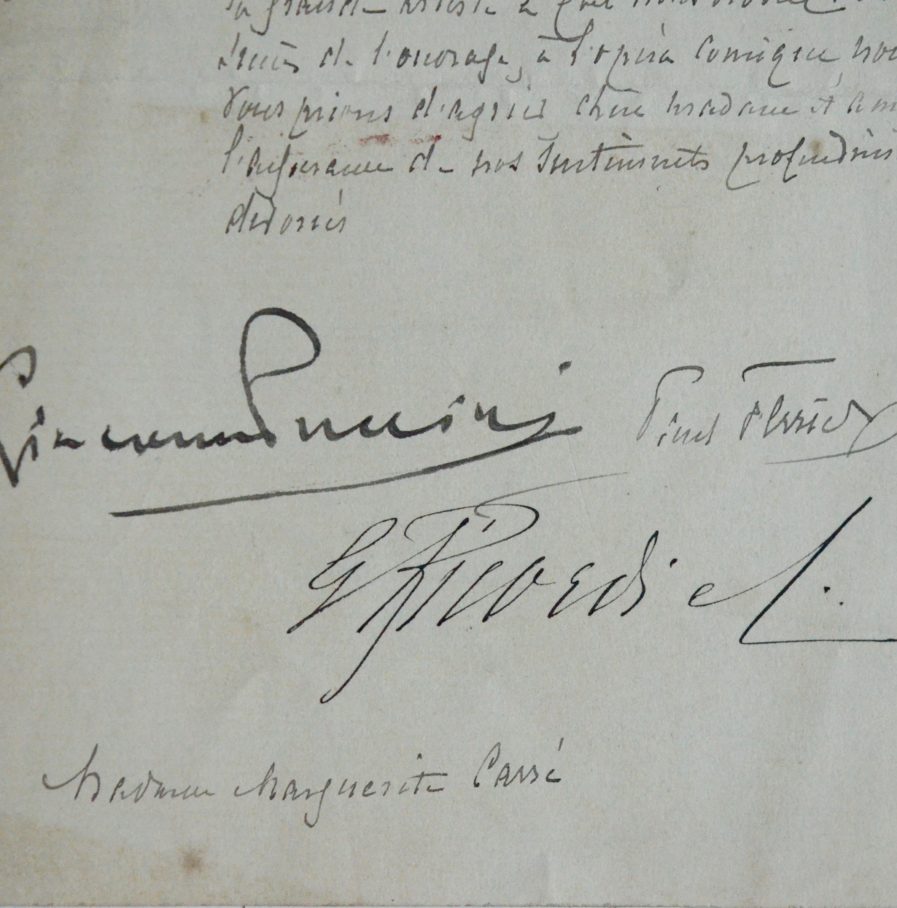 la grande artiste à qui nous
succès de l'ouvrage, à l'opéra Comique, nou
vous prions d'agréer chère madame et am
l'assurance de nos sentiments profondém
dévoués
Giacomo Puccini Paul Ferrier
G Ricordi e C.
Madame Marguerite Carré